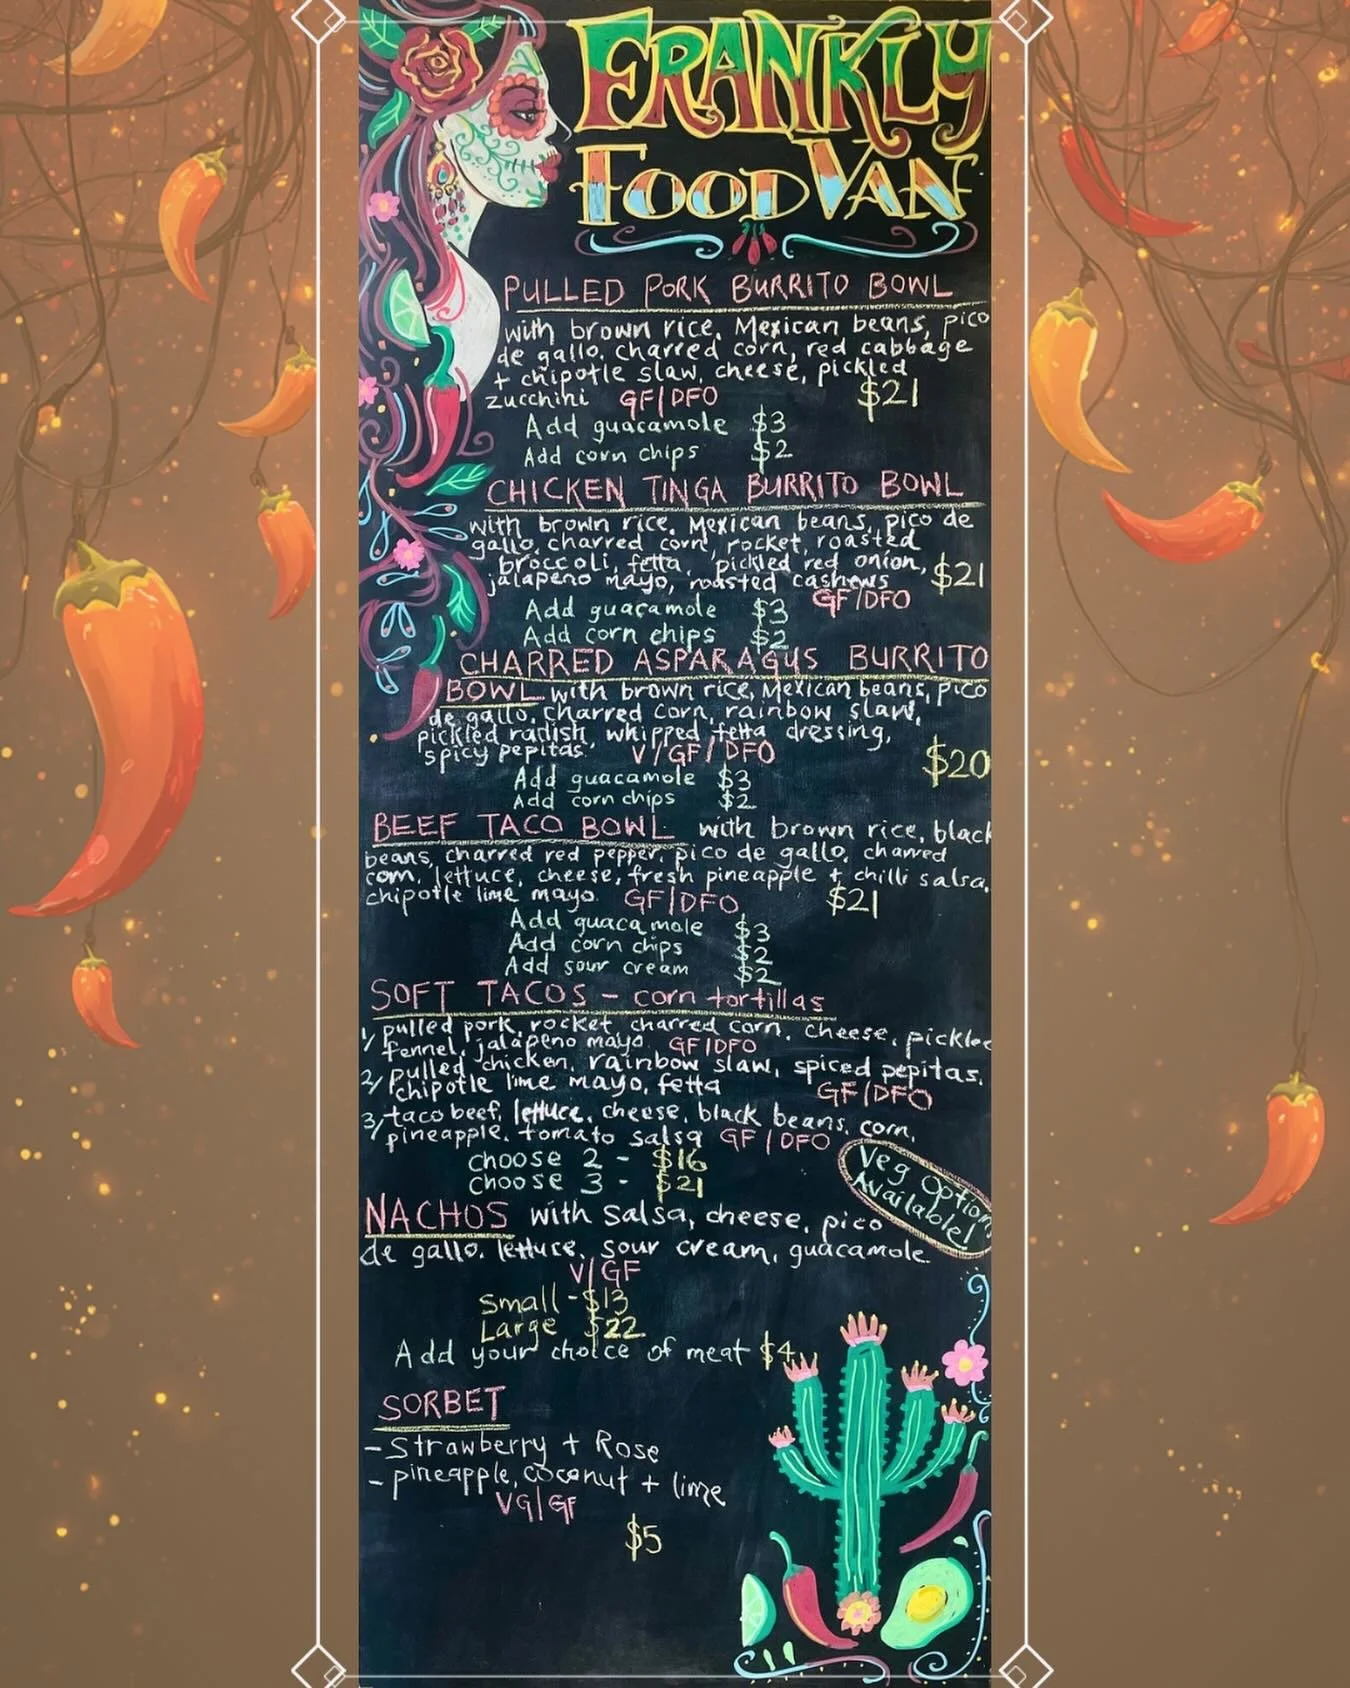 FRANKLY
FOOD VAN
PULLED PORK BURRITO BOWL
with brown rice, Mexican beans, pico
de gallo, charred corn, red cabbage
+ chipotle slaw, cheese, pickled
zucchini GF/DFO $21
Add guacamole $3
Add corn chips $2
CHICKEN TINGA BURRITO BOWL
with brown rice, Mexican beans, pico de
gallo, charred corn, rocket, roasted
broccoli, fetta, pickled red onion, $21
jalapeno mayo, roasted cashews
GF/DFO
Add guacamole $3
Add corn chips $2
CHARRED ASPARAGUS BURRITO
BOWL with brown rice, Mexican beans, pico
de gallo, charred corn, rainbow slaw,
pickled radish, whipped fetta dressing,
spicy pepitas V/GF/DFO $20
Add guacamole $3
Add corn chips $2
BEEF TACO BOWL with brown rice, black
beans, charred red pepper, pico de gallo, charred
corn, lettuce, cheese, fresh pineapple + chilli salsa,
chipotle lime mayo GF/DFO $21
Add guacamole $3
Add corn chips $2
Add sour cream $2
SOFT TACOS - corn tortillas
1/ pulled pork, rocket, charred corn, cheese, pickled
fennel, jalapeno mayo GF/DFO
2/ pulled chicken, rainbow slaw, spiced pepitas,
chipotle lime mayo, fetta GF/DFO
3/ taco beef, lettuce, cheese, black beans, corn,
pineapple, tomato salsa GF/DFO
choose 2 - $16
choose 3 - $21
Veg Option
Available!
NACHOS with salsa, cheese, pico
de gallo, lettuce, sour cream, guacamole
V/GF
Small - $13
Large $22
Add your choice of meat $4
SORBET
- Strawberry + Rose
- pineapple, coconut + lime
VG/GF
$5